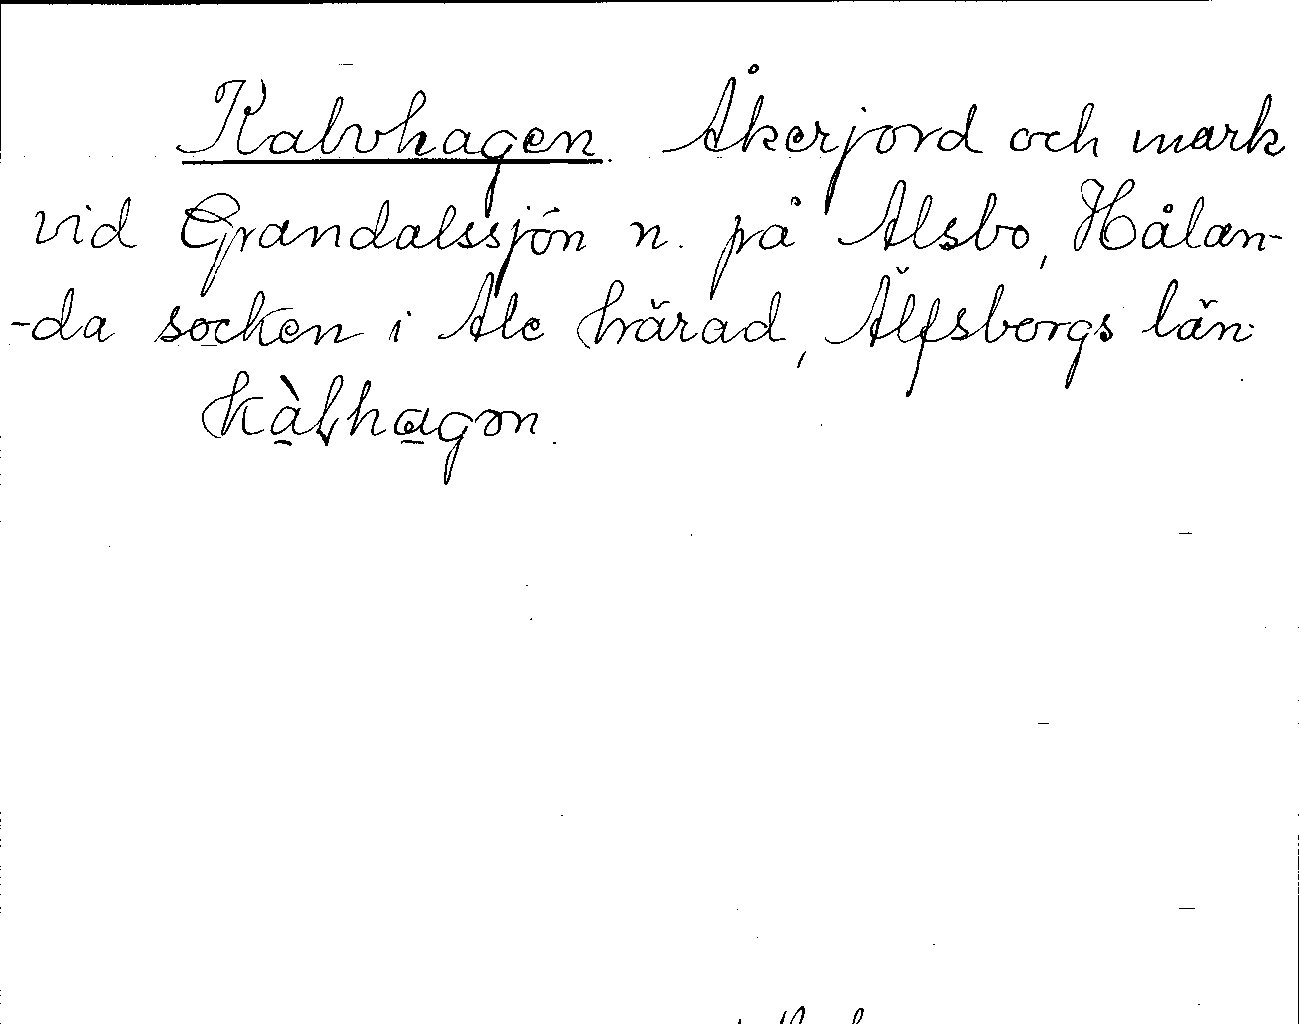 Kalvhagen. Åkerjord och mark
vid Grandalssjön n. på Alsbo, Hålan-
-da socken i Ale härad, Älfsborgs län.
kàlhagən.